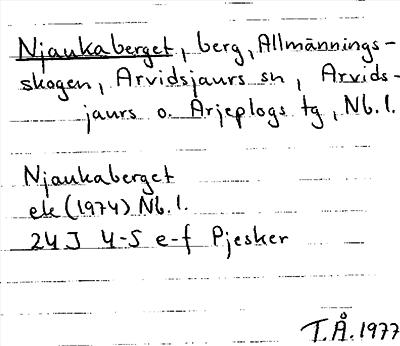 Njaukaberget, berg, Allmännings-
skogen, Arvidsjaurs sn, Arvids-
jaurs o. Arjeplogs tg, Nb. l.
Njaukaberget
ek (1974) Nb. l.
24J 4-5 e-f Pjesker
T.Å. 1977